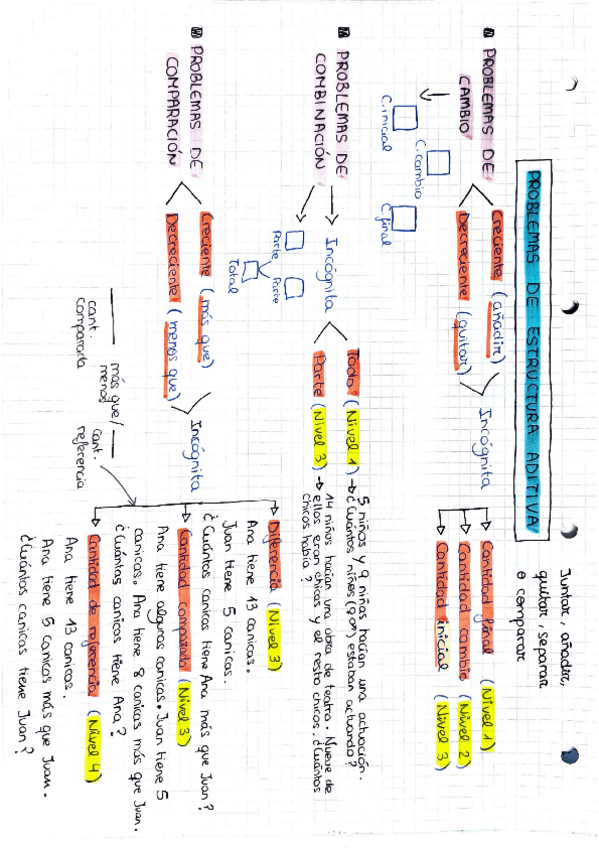 PROBLEMAS DE ESTRUCTURA ADITIVA
Juntar, añadir,
quitar, separar
o comparar
PROBLEMAS DE
CAMBIO
Creciente (añadir)
Decreciente (quitar)
Incógnita
Cantidad final (Nivel 1)
Cantidad cambio (Nivel 2)
Cantidad inicial (Nivel 3)
C.inicial
C.cambio
C.final
PROBLEMAS DE
COMBINACIÓN
Incógnita
Todo (Nivel 1) → 5 niños y 9 niñas hacían una actuación.
¿Cuántos niñes (9 or) estaban actuando?
Parte (Nivel 3) → 14 niños hacían una obra de teatro. Nueve de
ellos eran chicas y el resto chicos. ¿Cuántos
chicos había?
Parte
Parte
Total
PROBLEMAS DE
COMPARACIÓN
Creciente (más que)
Decreciente (menos que)
Incógnita
cant.
comparada
más que/
menos
cant.
referencia
Diferencia (Nivel 3)
Ana tiene 13 canicas.
Juan tiene 5 canicas.
¿Cuántas canicas tiene Ana más que Juan?
Cantidad comparada (Nivel 3)
Ana tiene algunas canicas. Juan tiene 5
canicas. Ana tiene 8 canicas más que Juan.
¿Cuántas canicas tiene Ana?
Cantidad de referencia (Nivel 4)
Ana tiene 13 canicas.
Ana tiene 5 canicas más que Juan.
¿Cuántas canicas tiene Juan?